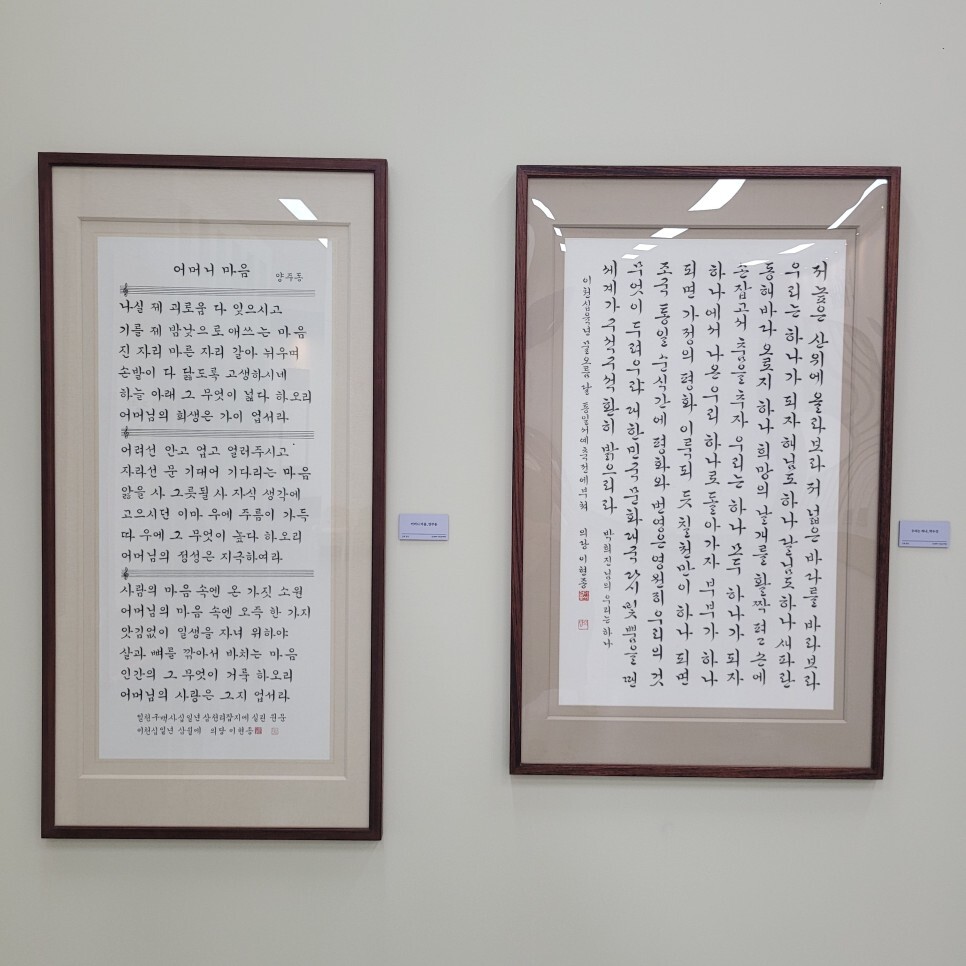 어머니 마음
양주동
나실 제 괴로움 다 잊으시고
기를 제 밤낮으로 애쓰는 마음
진 자리 마른 자리 갈아 뉘우며
손발이 다 닳도록 고생하시네
하늘 아래 그 무엇이 넓다 하오리
어머님의 희생은 가이 업서라
어려선 안고 업고 얼러주시고
자라선 문 기대어 기다리는 마음
앓을 사 그릇될 사 자식 생각에
고으시던 이마 우에 주름이 가득
따 우에 그 무엇이 높다 하오리
어머님의 정성은 지극하여라
사람의 마음 속엔 온 가짓 소원
어머님의 마음 속엔 오즉 한 가지
앗김없이 일생을 자녀 위하야
살과 뼈를 깎아서 바치는 마음
인간의 그 무엇이 거룩 하오리
어머님의 사랑은 그지 업서라
일천구백사십일년 삼천리잡지에 실린 원문
이천십일년 삼월에 의당 이현종
저 높은 산위에 올라보라 저 넓은 바다를 바라보라
우리는 하나가 되자 해님도 하나 달님도 하나 새파란
동해바다 오로지 하나 희망의 날개를 활짝 펴고 손에
손잡고서 춤을 추자 우리는 하나 모두 하나가 되자
하나에서 나온 우리 하나로 돌아가자 부부가 하나
되면 가정의 평화 이룩되듯 칠천만이 하나 되면
조국 통일 순식간에 평화와 번영은 영원히 우리의 것
무엇이 두려우랴 대한민국 문화대국 다시 빛 뿜을 땐
세계가 구석구석 환히 밝으리라
박희진님의 우리는 하나
의당 이현종